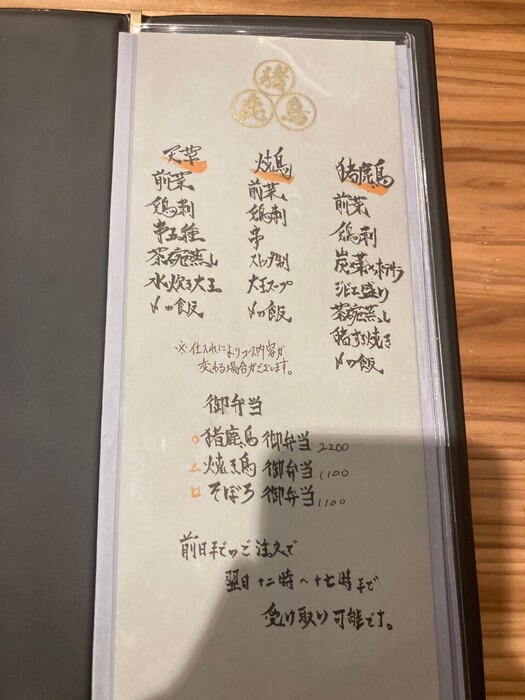 猪
鹿 鳥
天草
前菜
鶏刺
串五種
茶碗蒸し
水炊き大王
〆の飯
焼鳥
前菜
鶏刺
串
ストップ制
大王スープ
〆の飯
猪鹿鳥
前菜
鶏刺
炭菜×ポテサラ
ジビエ盛り
茶碗蒸し
猪すき焼き
〆の飯
※仕入れによりコース内容が
変わる場合がございます。
御弁当
○猪鹿鳥御弁当 2200
△焼き鳥御弁当 1100
□そぼろ御弁当 1100
前日までのご注文で
翌日十二時〜十七時まで
受け取り可能です。